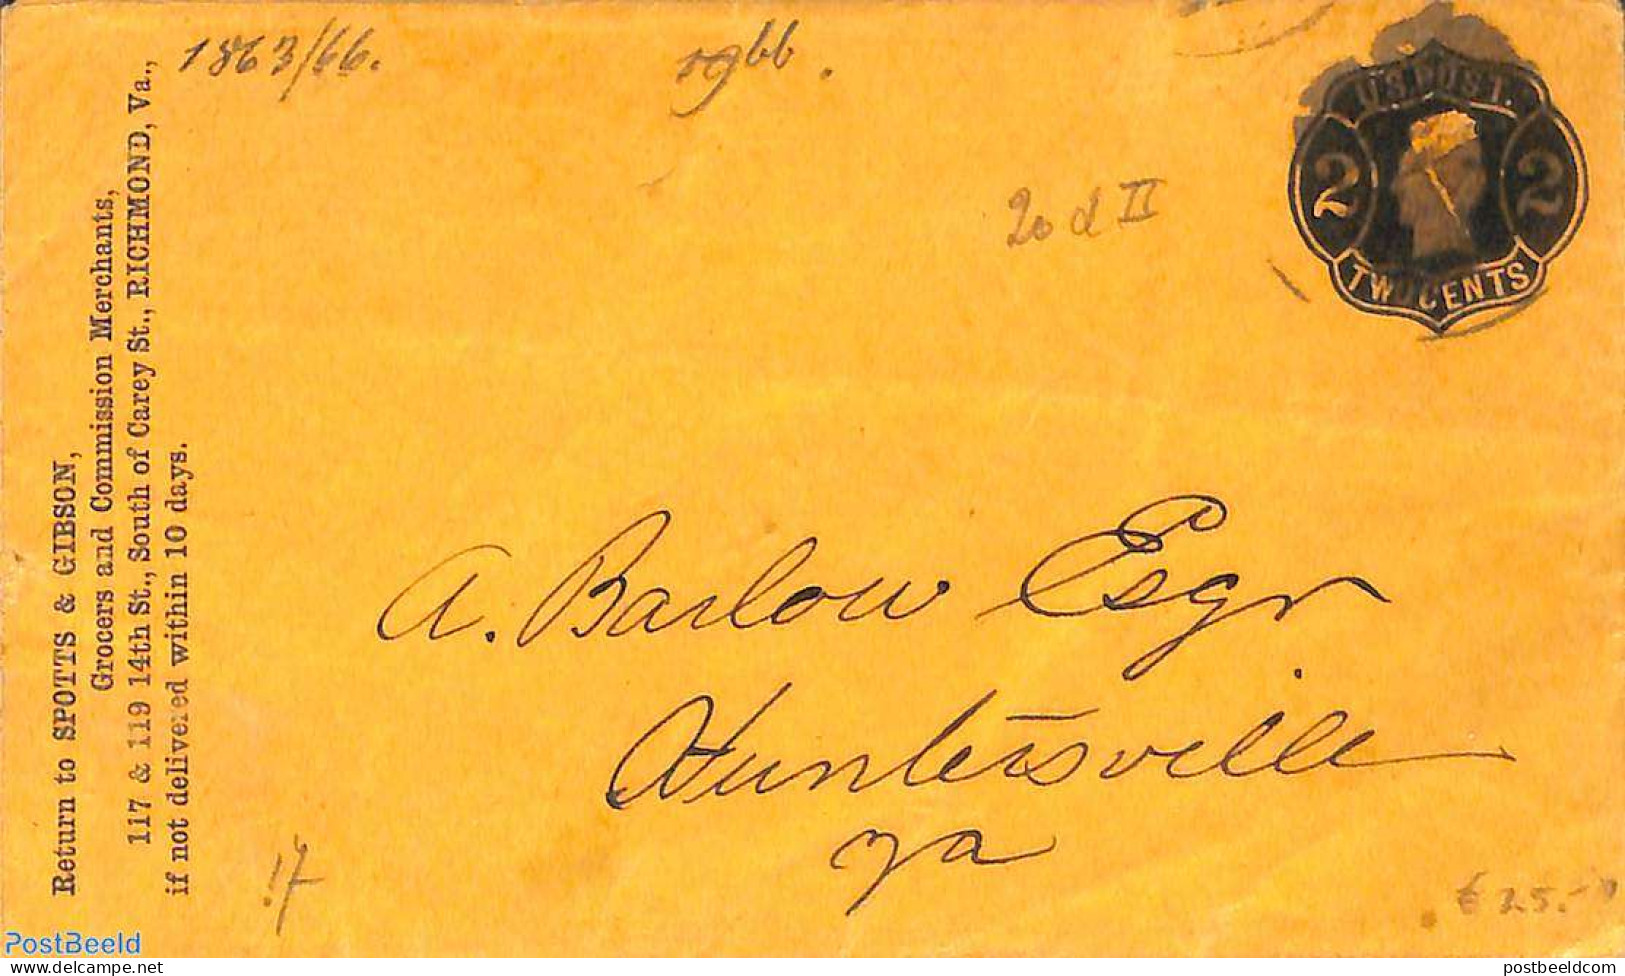 Return to SPOTTS & GIBSON,
Grocers and Commission Merchants,
117 & 119 14th St., South of Carey St., RICHMOND, Va.,
if not delivered within 10 days.
1863/66.
U.S. POST.
2 2
TWO CENTS
20 d II
A. Barlow Esqr
Huntersville
Va
17
€ 25.-
PostBeeld
postbeeldcom